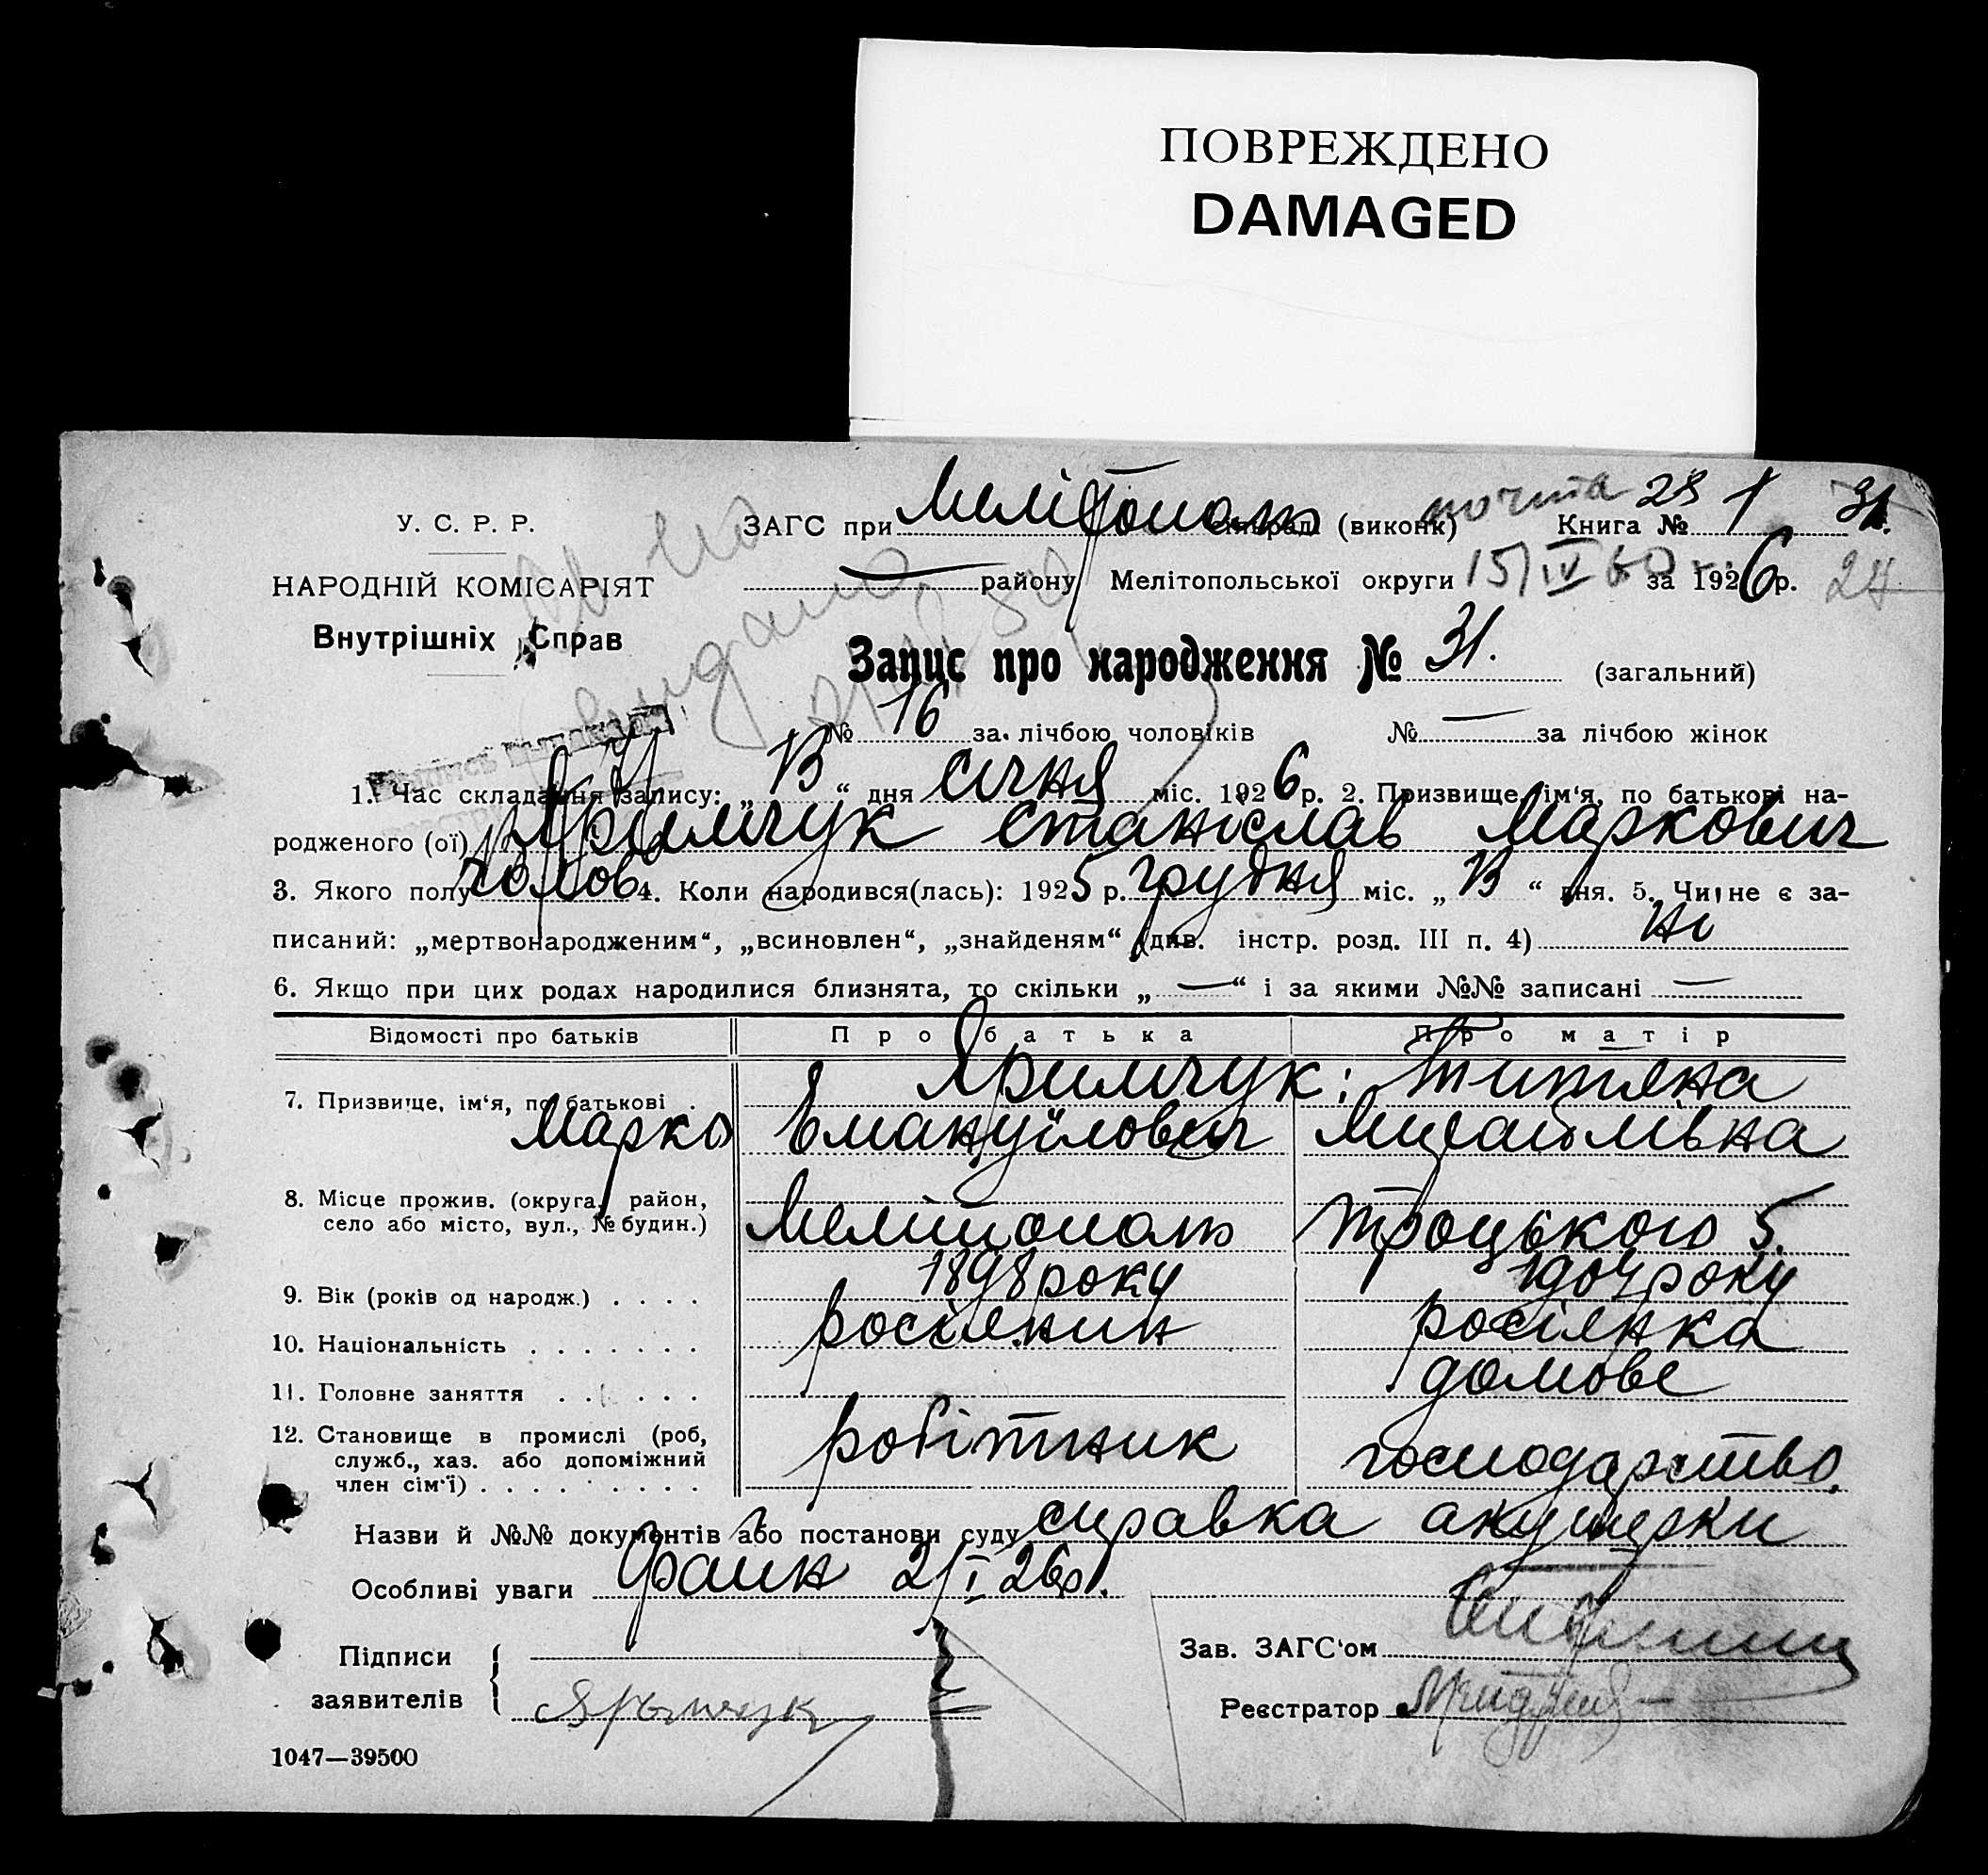 ПОВРЕЖДЕНО
DAMAGED
У. С. Р. Р.
ЗАГС при Мелітополь (виконк) почта 28 Книга № 1 31.
НАРОДНІЙ КОМІСАРІЯТ
— району Мелітопольської округи 15/IV 60 за 1926р. 24
Внутрішніх Справ
Запис про народження № 31. (загальний)
№ 16 за лічбою чоловіків № — за лічбою жінок
1. Час складання запису: „ " дня січня міс. 1926р. 2. Призвище, ім'я, по батькові на-
родженого (ої) Яримчук Станіслав Маркович
3. Якого полу чолов 4. Коли народився(лась): 1925 р. грудня міс. „ " дня. 5. Чи не є за-
писаний: „мертвонародженим", „всиновлен", „знайденям" (див. інстр. розд. III п. 4) ні
6. Якщо при цих родах народилися близнята, то скільки „ — " і за якими №№ записані —
Відомості про батьків Про батька Про матір
7. Призвище, ім'я, по батькові . Яримчук: Титяна
Марко Емануїлович Михайлівна
8. Місце прожив. (округа, район,
село або місто, вул., № будин.) Мелітополь Троцького 5.
9. Вік (років од народж.) . . . . 1898 року 1904 року
10. Національність . . . . . . . росіянин росіянка
11. Головне заняття . . . . . домове
12. Становище в промислі (роб,
служб., хаз. або допоміжний
член сім'ї) . . . . . . . . . робітник господарство.
Назви й №№ документів або постанови суду справка акушерки
Особливі уваги Файн 2/I 26р.
Підписи
заявителів Ярымчук
Зав. ЗАГС'ом
Реєстратор
1047—39500